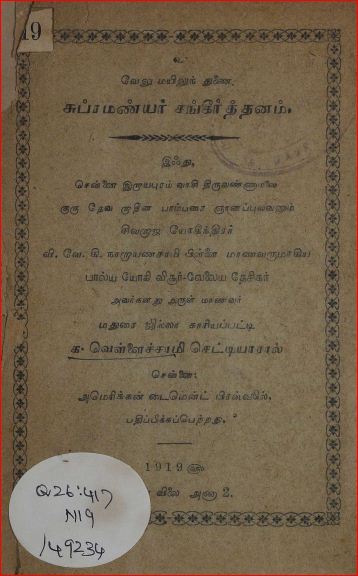 19
உ
வேலு மயிலுந் துணை.
சுப்ரமண்யர் சங்கீர்த்தனம்.
இஃது,
சென்னை இராயபுரம் வாசி திருவண்ணாமலை
குரு தேவ
சிவராஜ யோகீந்திரர்
வி. வே. கி. நாராயணசாமி பிள்ளை மாணவருமாகிய
பால்ய யோகி தேசிகர்
அவர்களது அருள் மாணவர்
மதுரை ஜில்லா காரியப்பட்டி
க. வெள்ளைச்சாமி செட்டியாரால்
சென்னை:
அமெரிக்கன் டைமெண்ட் பிரஸ்ஸில்,
பதிப்பிக்கப்பெற்றது.
1919
விலை அணா 2.
Q26:417
N19
149234